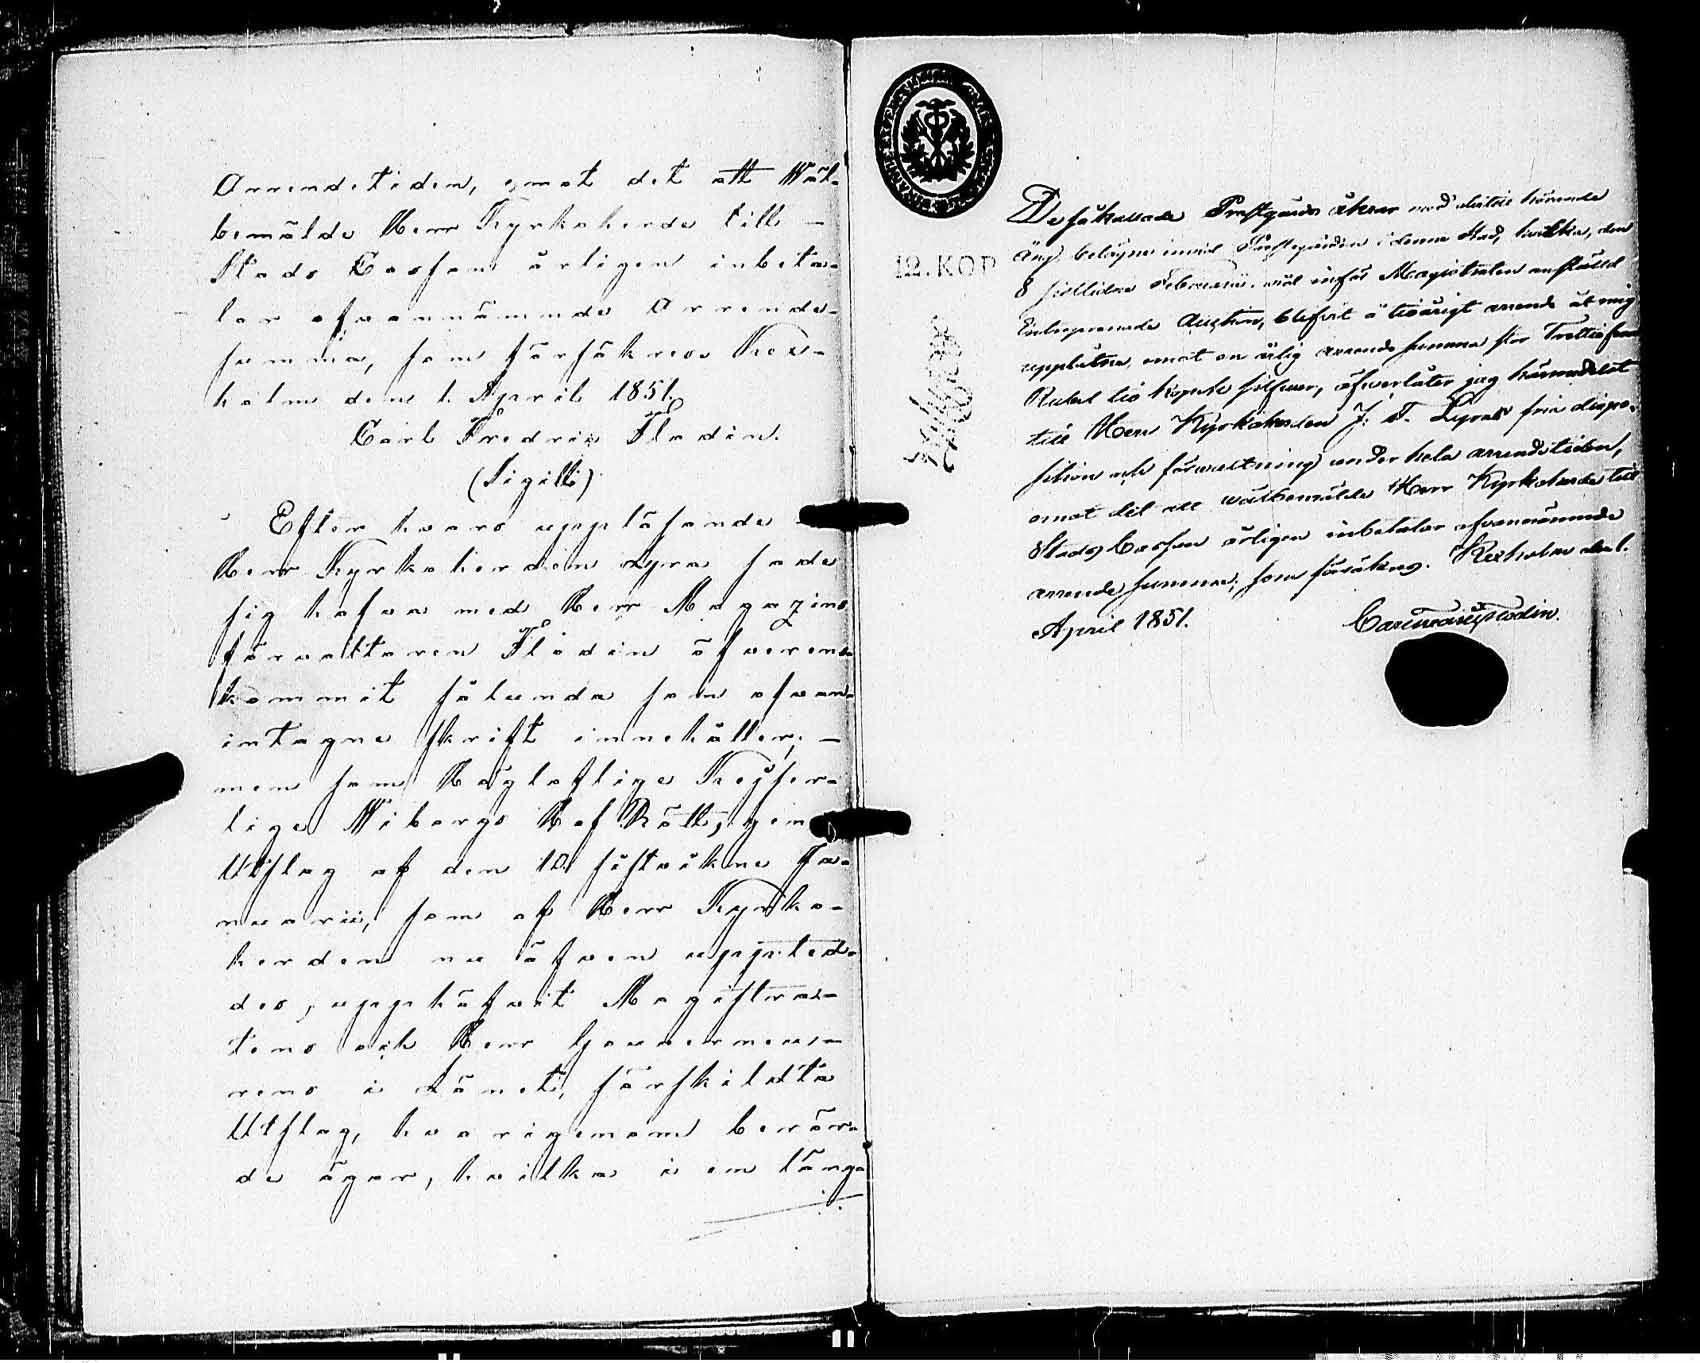 Arrendetiden, emot det att Wäl-
bemälde Herr Kyrkoherde till
Stads Cassan årligen inbeta-
lar ofvannämnde Arrende-
summa, som försäkras Kex-
holm den 1. April 1851.
Carl Fredric Flodin.
(Sigill)
Efter hvars uppläsande
Herr Kyrkoherden Lyra sade
sig hafva med Herr Magazins
förvaltaren Flodin öfverens-
kommit sålunda som ofvan-
intagne skrift innehåller;
men som Högloflige Kejser-
lige Wiborgs Hof Rätt, genom
Utslag af den 10 sistvikne Ja-
nuarii, som af Herr Kyrko-
herden nu äfven uppted-
des, upphäfvit Magistra-
tens och Herr Gouverneu-
rens i Länet, särskildta
Utslag, hvarigenom berör-
de ägor, hvilka i en läng-
12. KOP
De såkallade Prestgårds åkrar med dertill hörande
äng, belägne invid Prestgården i denna stad, hvilka, den
8 sistlidne Februarii, vid inför Magistraten anstäld
Entreprenade Auction, blifvit å tioårigt arrende åt mig
upplåtne, emot en årlig arrende summa stor Trettiofem
Rubel tio kopek silfver, öfverlåter jag härmedelst
till Herr Kyrkoherden J. F. Lyras fria dispo-
sition och förvaltning under hela arrendetiden,
emot det att välbemälde Herr Kyrkoherde till
Stads Cassan årligen inbetalar ofvannämnde
arrende summa; som försäkras. Kexholm den 1.
April 1851.
Carl Fredric Flodin.